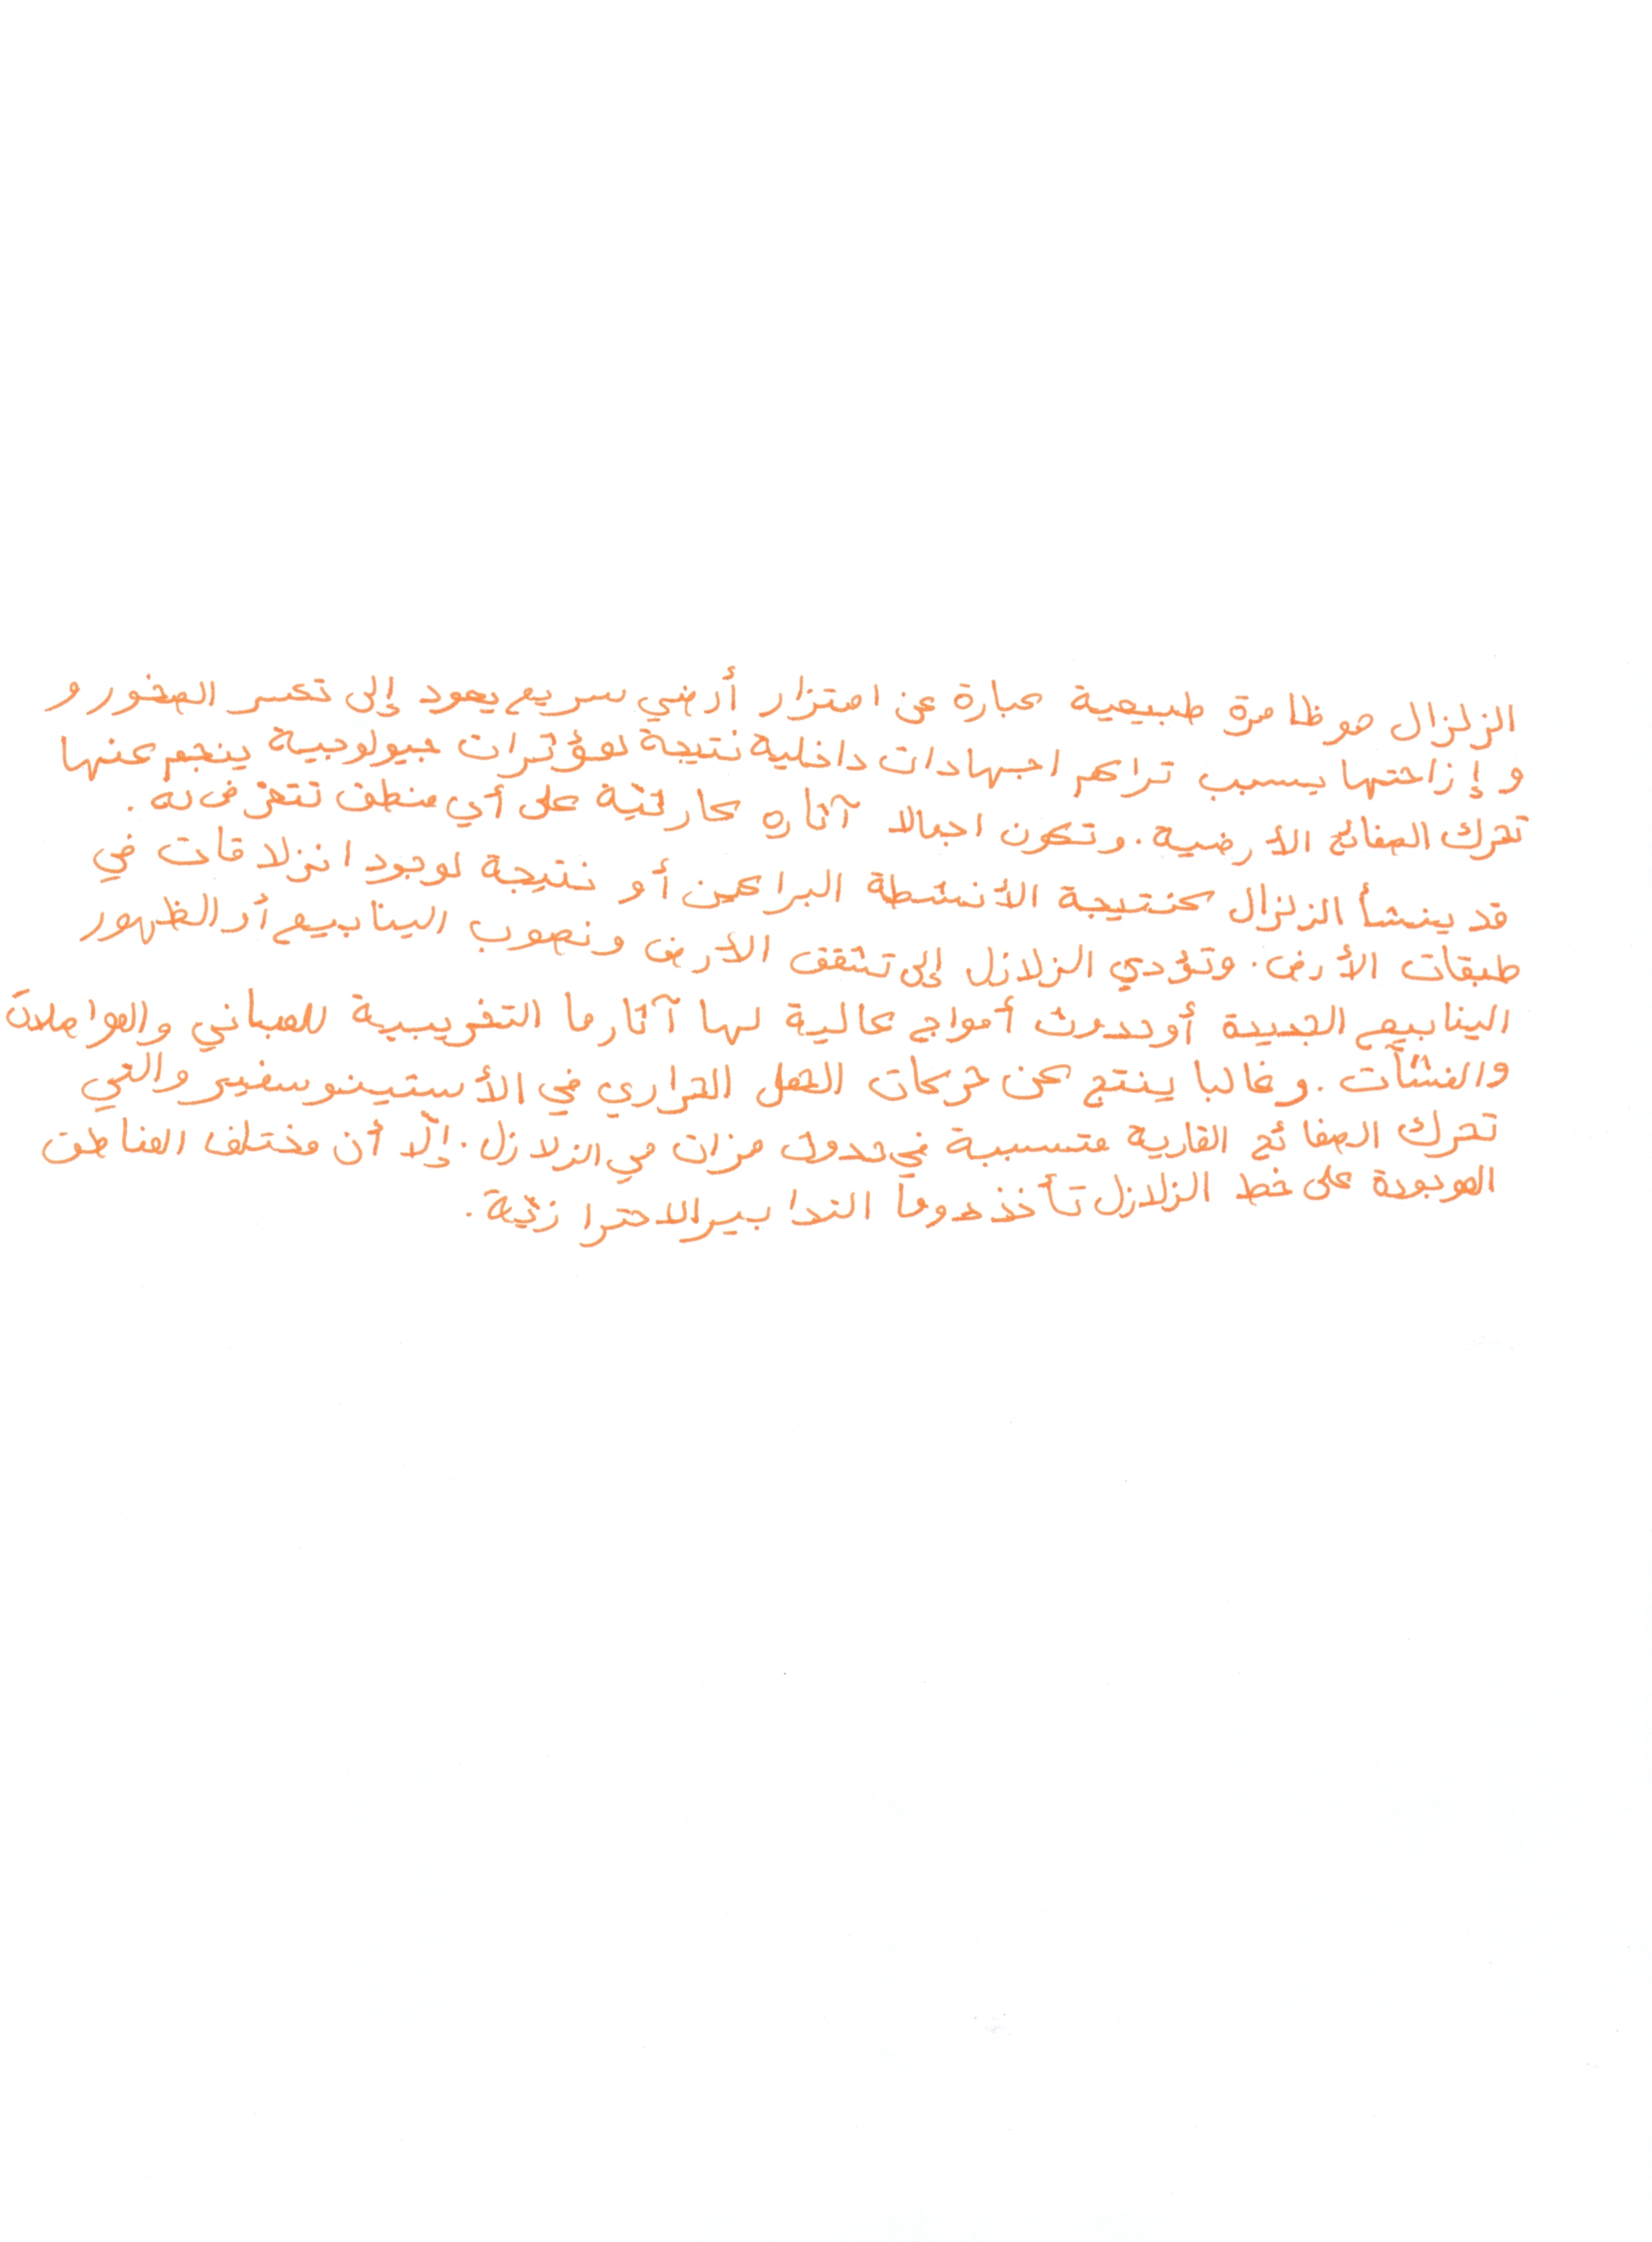 الزلزال هو ظاهرة طبيعية عبارة عن اهتزاز أرضي سريع يعود إلى تكسر الصخور و
و إزاحتها بسبب تراكم اجهادات داخلية نتيجة لمؤثرات جيولوجية ينجم عنها
تحرك الصفائح الأرضية. وتكون اجمالا آثاره كارثية على أي منطق تتعرض له.
قد ينشأ الزلزال كنتيجة الأنشطة البراكين أو نتيجة لوجود انزلاقات في
طبقات الأرض. وتؤدي الزلازل إلى تشقق الأرض ونصوب الينابيع أو الظهور
الينابيع الجديدة أو حدوث أمواج عالية لها آثارها التخريبية للمباني والمواصلات
والمنشآت. وغالبا ينتج عن حركات الحمل الحراري في الأستينوسفير والتي
تحرك الصفائح القارية متسببة في حدوث هزات هي الزلازل. إلّا أن مختلف المناطق
الموجودة على خط الزلازل تأخذ دوما التدابير الاحترازية.